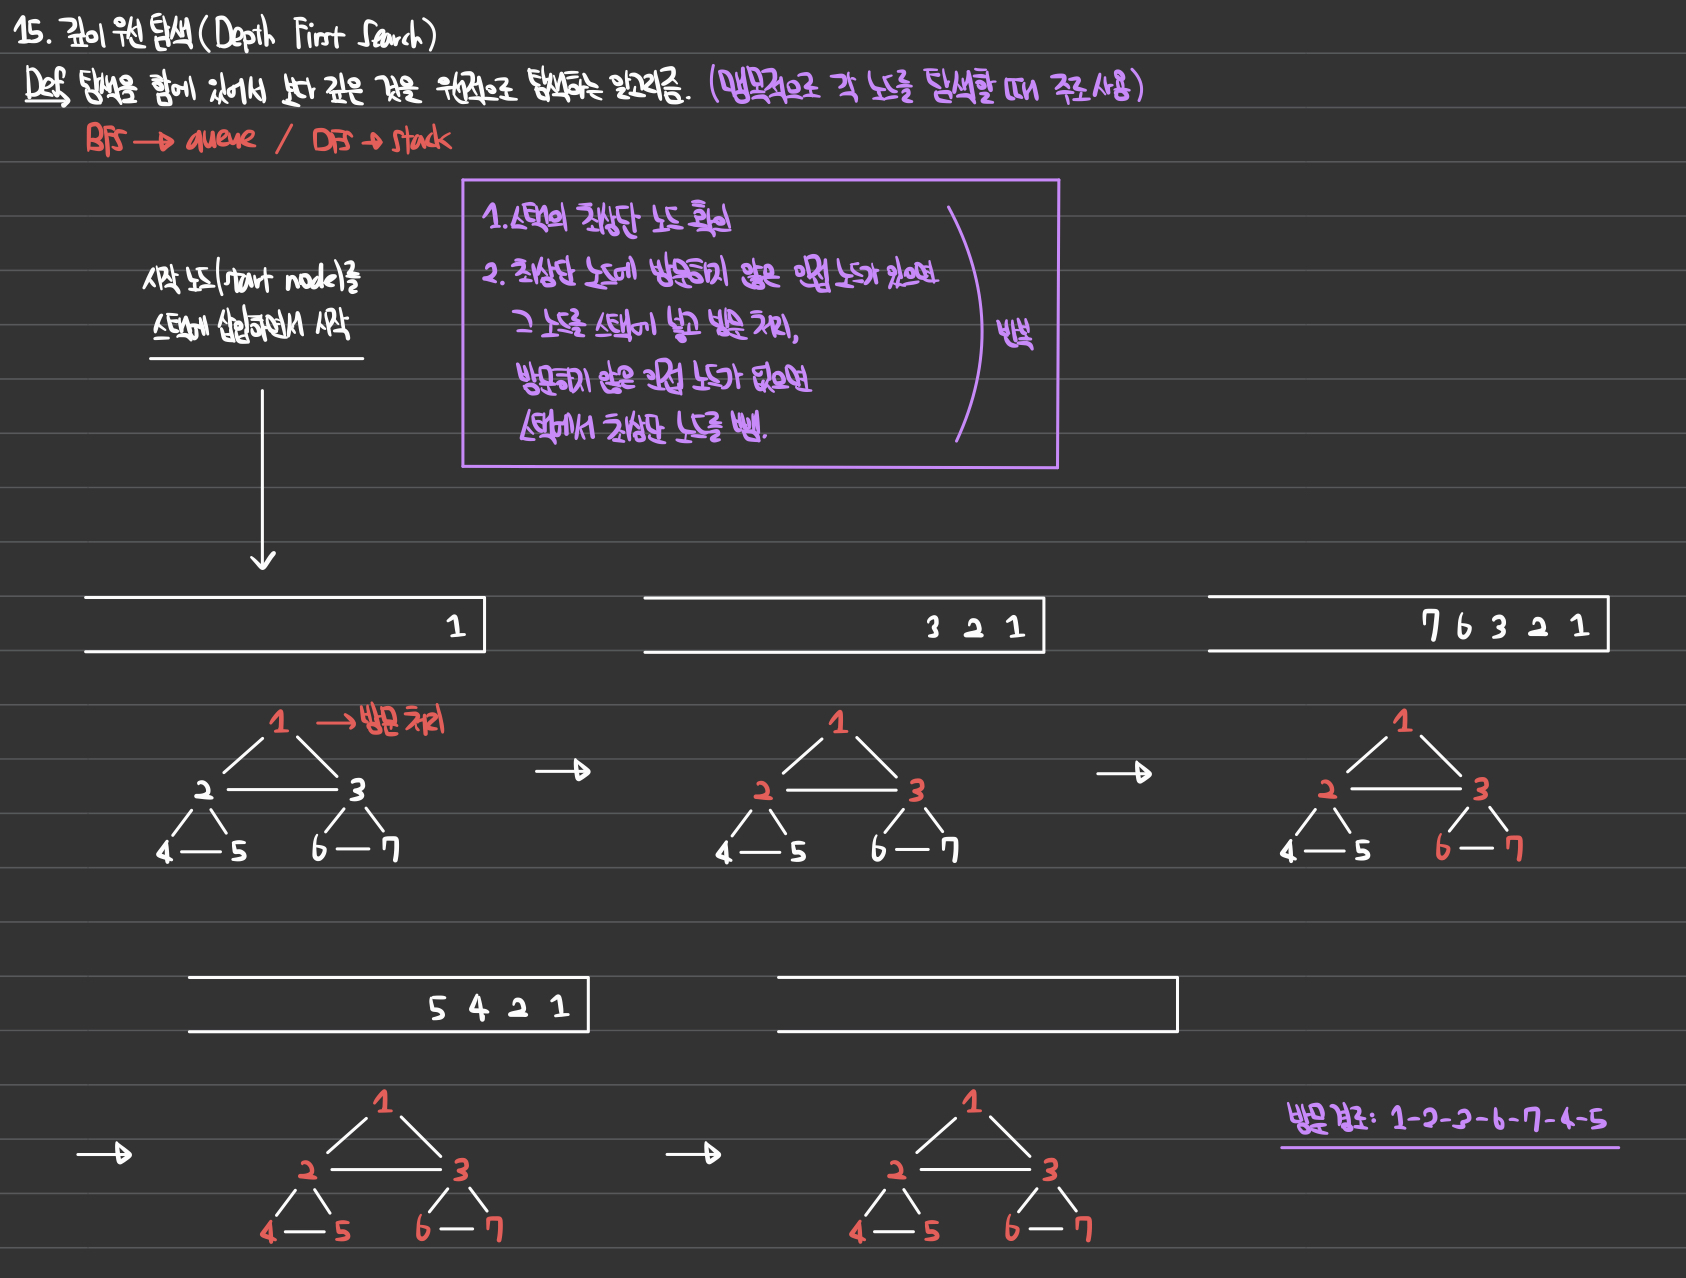 15. 깊이 우선 탐색 (Depth First Search)
Def 탐색을 함에 있어서 보다 깊은 것을 우선적으로 탐색하는 알고리즘. (맹목적으로 각 노드를 탐색할 때 주로 사용)
BFS → queue / DFS → stack
시작 노드(start node)를
스택에 삽입하면서 시작
1. 스택의 최상단 노드 확인
2. 최상단 노드에 방문하지 않은 인접 노드가 있으면
그 노드를 스택에 넣고 방문 처리,
방문하지 않은 인접 노드가 없으면
스택에서 최상단 노드를 뺌.
반복
1
3 2 1
7 6 3 2 1
1 → 방문 처리
2 3
4 5 6 7
→
1
2 3
4 5 6 7
→
1
2 3
4 5 6 7
5 4 2 1
→
1
2 3
4 5 6 7
→
1
2 3
4 5 6 7
방문 경로: 1-2-3-6-7-4-5